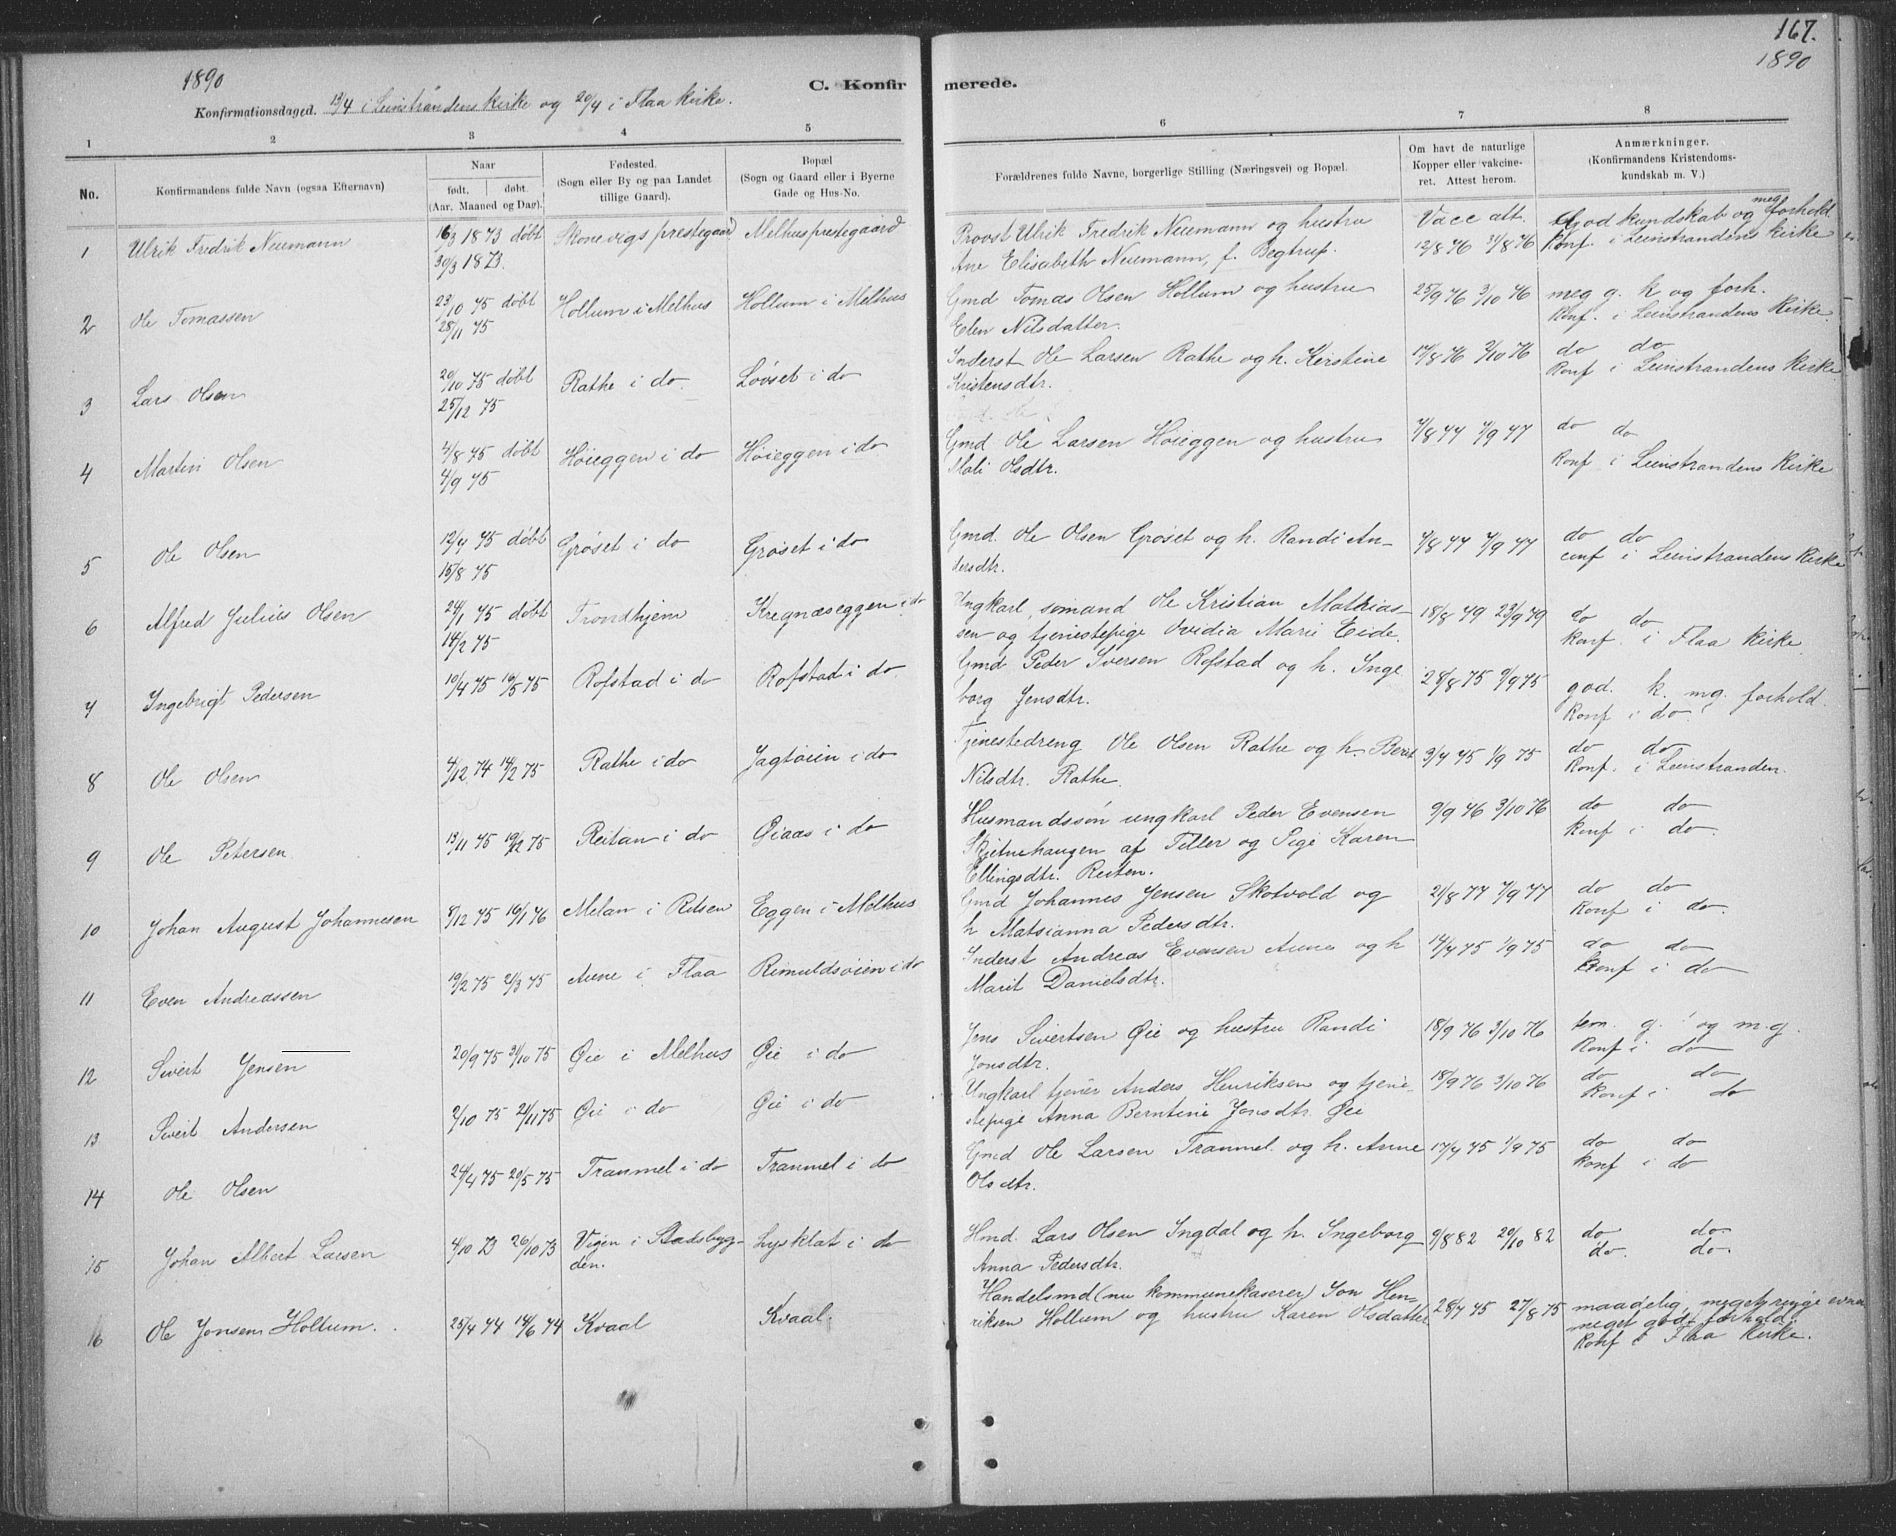 167.
1890 1890
C. Konfirmerede.
Konfirmationsdage. 13/4 i Leinstrandens kirke og 20/4 i Flaa kirke.
1 2 3 4 5 6 7 8
No.
Konfirmandens fulde Navn (ogsaa Efternavn)
Naar
født. døbt.
(Aar, Maaned og Dag).
Fødested.
(Sogn eller By og paa Landet
tillige Gaard).
Bopæl
(Sogn og Gaard eller i Byerne
Gade og Hus-No.
Forældrenes fulde Navne, borgerlige Stilling (Næringsvei) og Bopæl.
Om havt de naturlige
Kopper eller vakcine-
ret. Attest herom.
Anmærkninger.
(Konfirmandens Kristendoms-
kundskab m. V.)
1 Ulrik Fredrik Neumann 16/3 1873 døbt Skonevigs prestegaard Melhus prestegaard Provst Ulrik Fredrik Neumann og hustru Vacc att. God kundskab og meg forhold
30/3 1873. Ane Elisabeth Neumann, f. Begtrup. 12/8 76 31/8 76 Konf. i Leinstrandens kirke
2 Ole Tomassen 23/10 75 døbt Hollum i Melhus Hollum i Melhus Gmd Tomas Olsen Hollum og hustru 25/9 76 3/10 76 meg g. k og forh.
28/11 75 Elen Nilsdatter. Konf. i Leinstrandens kirke.
3 Lars Olsen 20/10 75 døbt Rathe i do Løvset i do Inderst Ole Larsen Rathe og h. Kerstine 17/8 76 2/10 76 do do
25/12 75 Kristensdtr. Konf i Leinstrandens kirke.
4 Martin Olsen 4/8 75 døbt Høieggen i do Høieggen i do Gmd Ole Larsen Høieggen og hustru 7/8 77 7/9 77 do do
4/9 75 Mali Olsdtr. Konf i Leinstrandens kirke
5 Ole Olsen 12/7 75 døbt Grøset i do Grøset i do Gmd. Ole Olsen Grøset og h. Randi An- 7/8 77 7/9 77 do do
15/8 75 dersdtr. conf i Leinstrandens kirke
6 Alfred Julius Olsen 24/1 75 døbt Trondhjem Kregnæseggen i do Ungkarl, sømand Ole Kristian Mathias- 18/8 79 23/9 79 do do
14/2 75 sen og tjenestepige Ovidia Marie Eide. Konf. i Flaa kirke
7 Ingebrigt Pedersen 10/4 75 16/5 75 Rofstad i do Rofstad i do Gmd Peder Iversen Rofstad og h. Inge 28/8 75 9/9 75 god. k. mg. forhold.
borg Jensdtr. Konf i do.
8 Ole Olsen 4/12 74 14/2 75 Rathe i do Jagtøien i do Tjenestedreng Ole Olsen Rathe og h. Berit 3/7 75 1/9 75 do do
Nilsdtr. Rathe. Konf. i Leinstranden.
9 Ole Petersen 13/11 75 19/12 75 Reitan i do Øiaas i do Husmandssøn ungkarl Peder Evensen 9/9 76 3/10 76 do do
Skjetnehaugen af Tiller og Pige Karen konf i do.
Ellingsdtr. Reiten.
10 Johan August Johannesen 8/12 75 16/1 76 Melan i Ritsen Eggen i Melhus Gmd Johannes Jensen Skotvold og 21/8 77 7/9 77 do do
h Matsianna Pedersdtr. Konf i do.
11 Even Andreassen 19/2 75 21/3 75 Aune i Flaa Rimuldsøien i do Inderst Andreas Evensen Aune og h 14/7 75 1/9 75 do do
Marit Danielsdtr. Konf i do
12 Sivert Jensen 20/9 75 31/10 75 Øie i Melhus Øie i do Jens Sivertsen Øie og hustru Randi 18/9 76 3/10 76 tem. g. og m.g.
Jonsdtr. Konf i do
13 Sivert Andersen 2/10 75 21/11 75 Øie i do Øie i do Ungkarl tjener Anders Henriksen og tjene- 18/9 76 3/10 76 do do
stepige Anna Berntine Jonsdtr. Øie Konf i do
14 Ole Olsen 24/4 75 20/5 75 Tranmel i do Tranmel i do Gmd Ole Larsen Tranmel og h. Anne 17/7 75 1/9 75 do do
Olsdtr. Konf i do
15 Johan Albert Larsen 4/10 73 26/10 73 Vigen i Stadsbyg- Lysklat i do Hmd. Lars Olsen Ingdal og h. Ingeborg 9/8 82 20/10 82 do do.
den. Anna Pedersdtr. do. do.
16 Ole Jonsen Hollum. 25/4 74 14/6 74 Kvaal Kvaal. Handelsmd (nu kommunekaserer) Jon Hen- 28/7 75 27/8 75 maadelig, meget ringe evner
riksen Hollum og hustru Karen Olsdatter meget god forhold.
Konf i Flaa kirke.